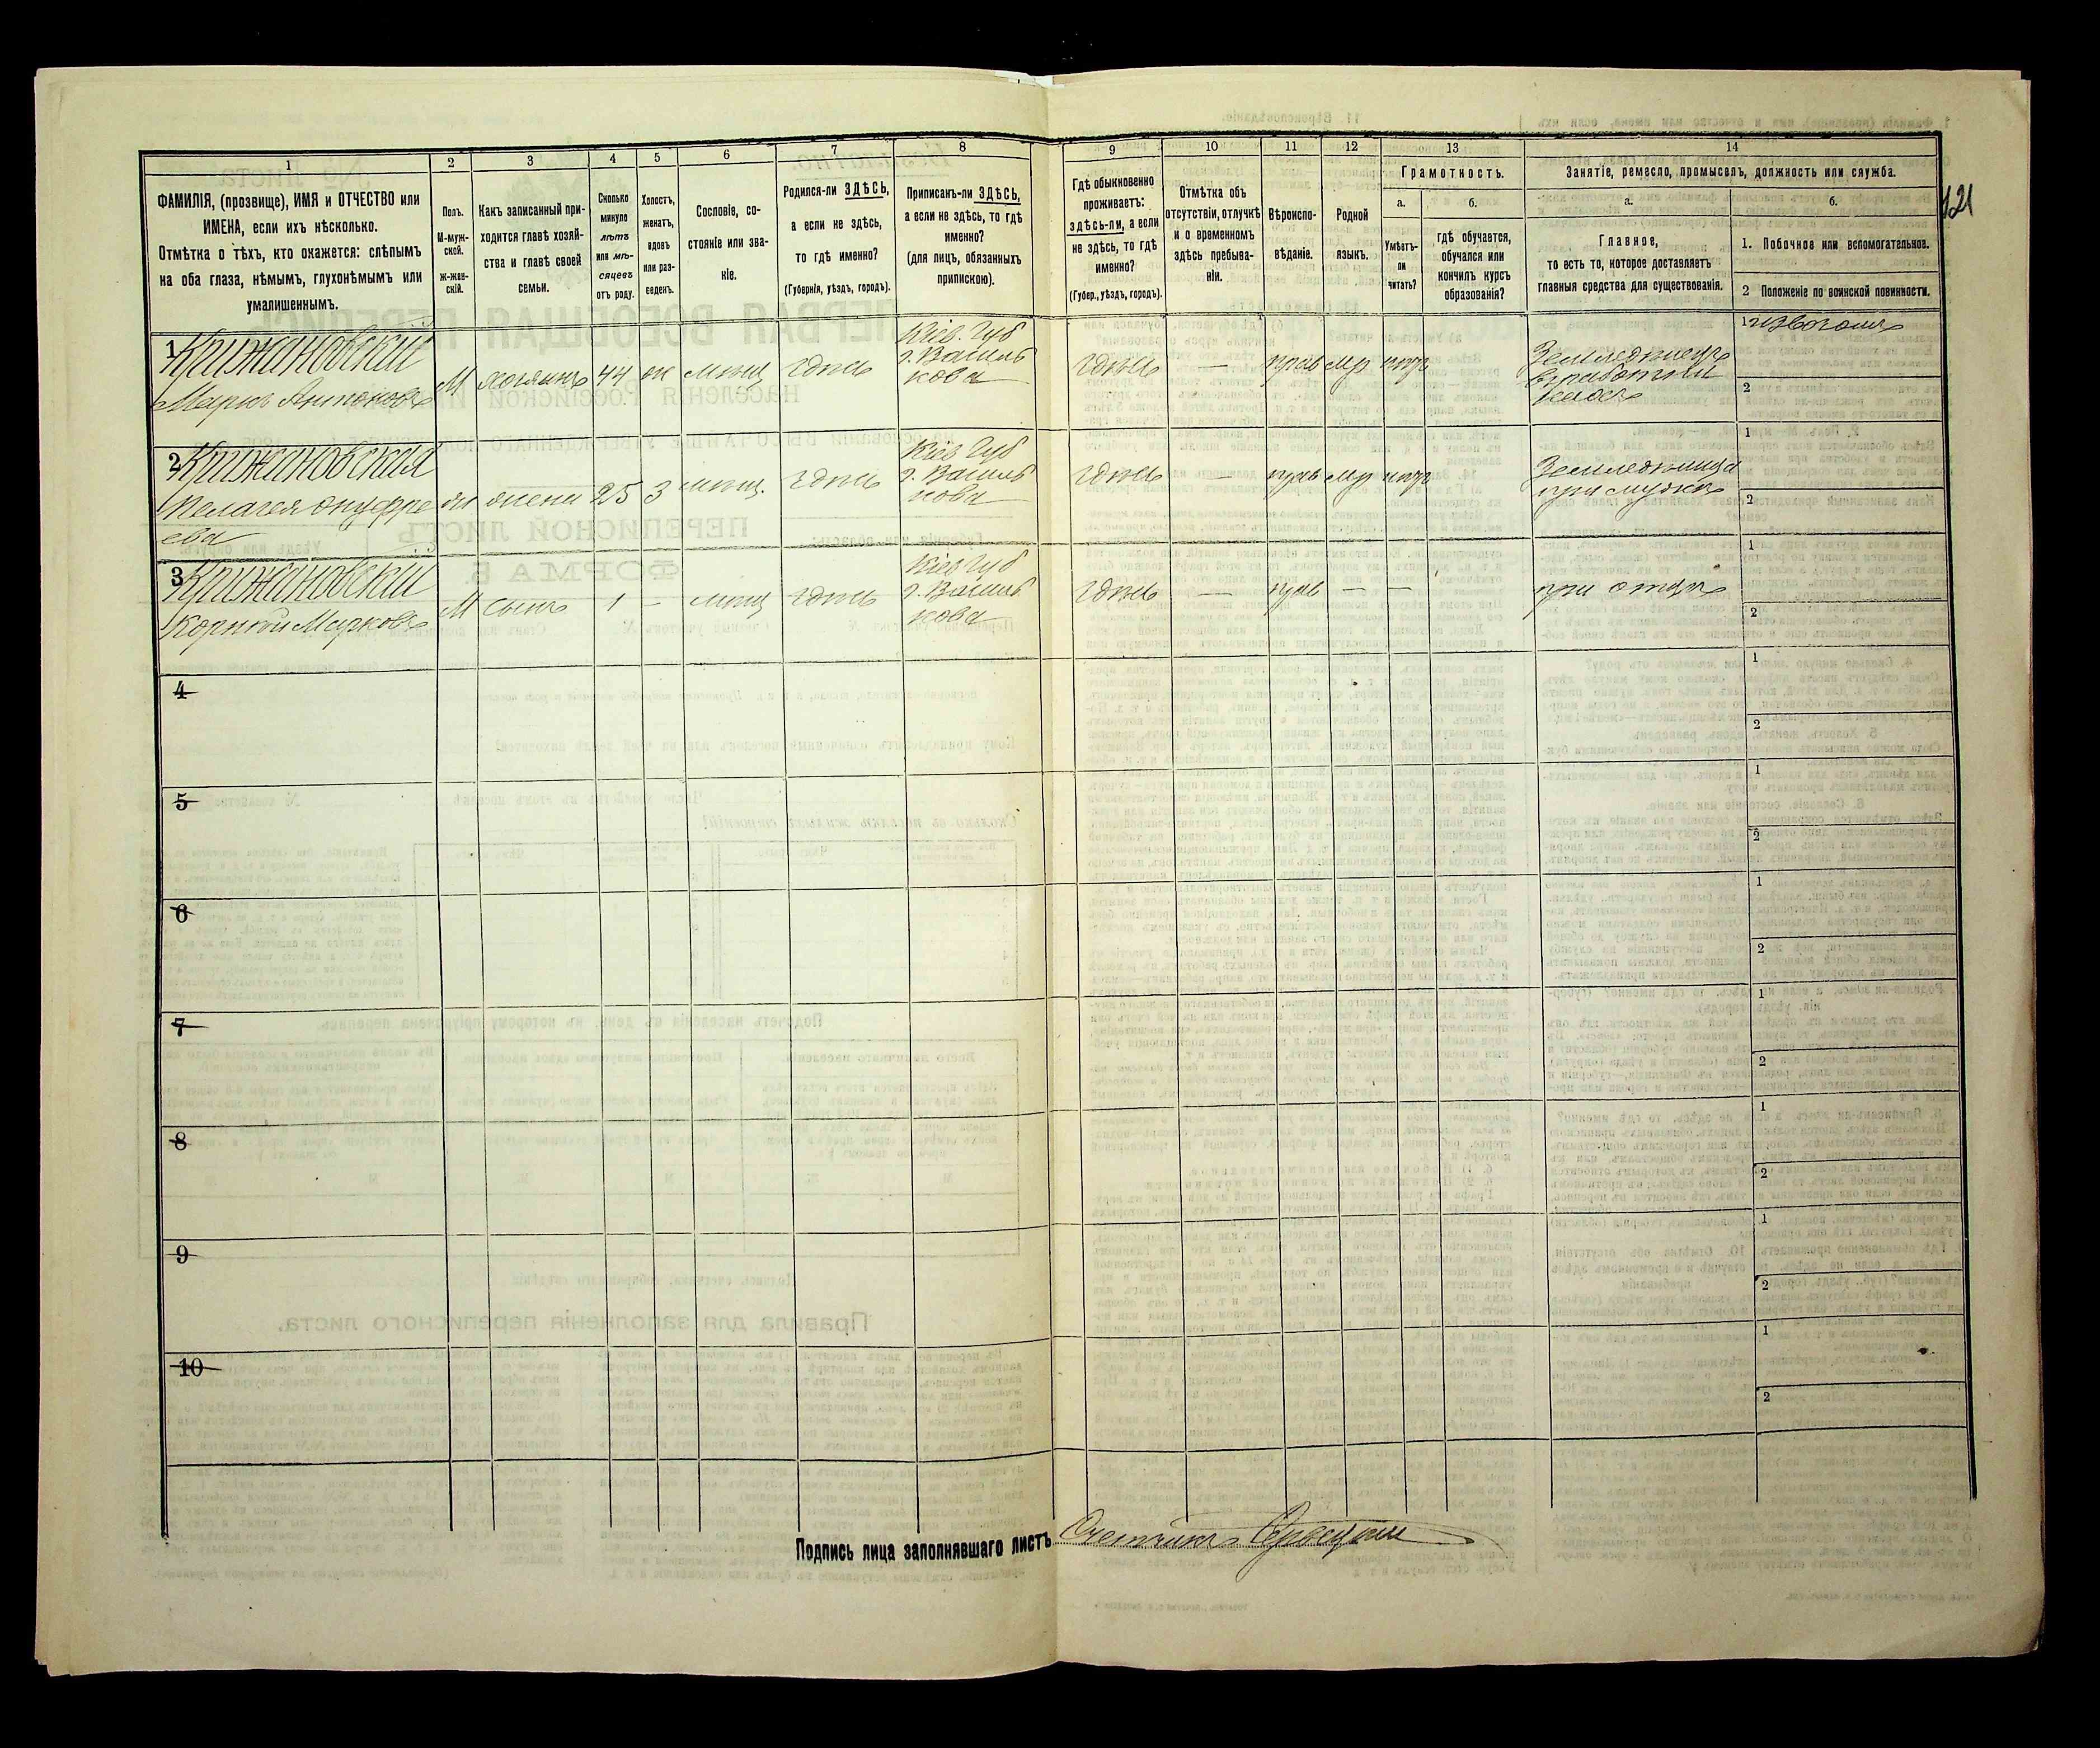 121
1 2 3 4 5 6 7 8 9 10 11 12 13 14
ФАМИЛІЯ, (прозвище), ИМЯ и ОТЧЕСТВО или
ИМЕНА, если ихъ нѣсколько.
Отмѣтка о тѣхъ, кто окажется: слѣпымъ
на оба глаза, нѣмымъ, глухонѣмымъ или
умалишеннымъ.
Полъ.
М-муж-
ской.
ж-жен-
скій.
Какъ записанный при-
ходится главѣ хозяй-
ства и главѣ своей
семьи.
Сколько
минуло
лѣтъ
или мѣ-
сяцевъ
отъ роду.
Холостъ,
женатъ,
вдовъ
или раз-
веденъ.
Сословіе, со-
стояніе или зва-
ніе.
Родился-ли ЗДѢСЬ,
а если не здѣсь,
то гдѣ именно?
(Губернія, уѣздъ, городъ).
Приписанъ-ли ЗДѢСЬ,
а если не здѣсь, то гдѣ
именно?
(для лицъ, обязанныхъ
припискою).
Гдѣ обыкновенно
проживаетъ:
здѣсь-ли, а если
не здѣсь, то гдѣ
именно?
(Губер., уѣздъ, городъ).
Отмѣтка объ
отсутствіи, отлучкѣ
и о временномъ
здѣсь пребыва-
ніи.
Вѣроиспо-
вѣданіе.
Родной
языкъ.
Грамотность.
а.
Умѣетъ-
ли
читать?
б.
гдѣ обучается,
обучался или
кончилъ курсъ
образованія?
Занятіе, ремесло, промыселъ, должность или служба.
а.
Главное,
то есть то, которое доставляетъ
главныя средства для существованія.
б.
1. Побочное или вспомогательное.
2 Положеніе по воинской повинности.
1 Крижановскій
Маркъ Антоновъ
М хозяинъ 44 ж мѣщ здѣсь
Кіев. Губ
г. Василь
кова
здѣсь — прав мр нѣтъ
1 извозомъ
2
2 Крижановская
Пелагея Онуфрі
ева
ж жена 25 з мѣщ. здѣсь
Кіев Губ
г. Василь
кова
здѣсь — прав мр нѣтъ
при мужѣ
1
2
3 Крижановскій
Корній Марковъ
М сынъ 1 — мѣщ здѣсь
Кіев Губ
г. Василь
кова
здѣсь — прав — —
при отцѣ
1
2
4
1
2
5
1
2
6
1
2
7
1
2
8
1
2
9
1
2
10
1
2
Подпись лица заполнявшаго листъ Счетчикъ